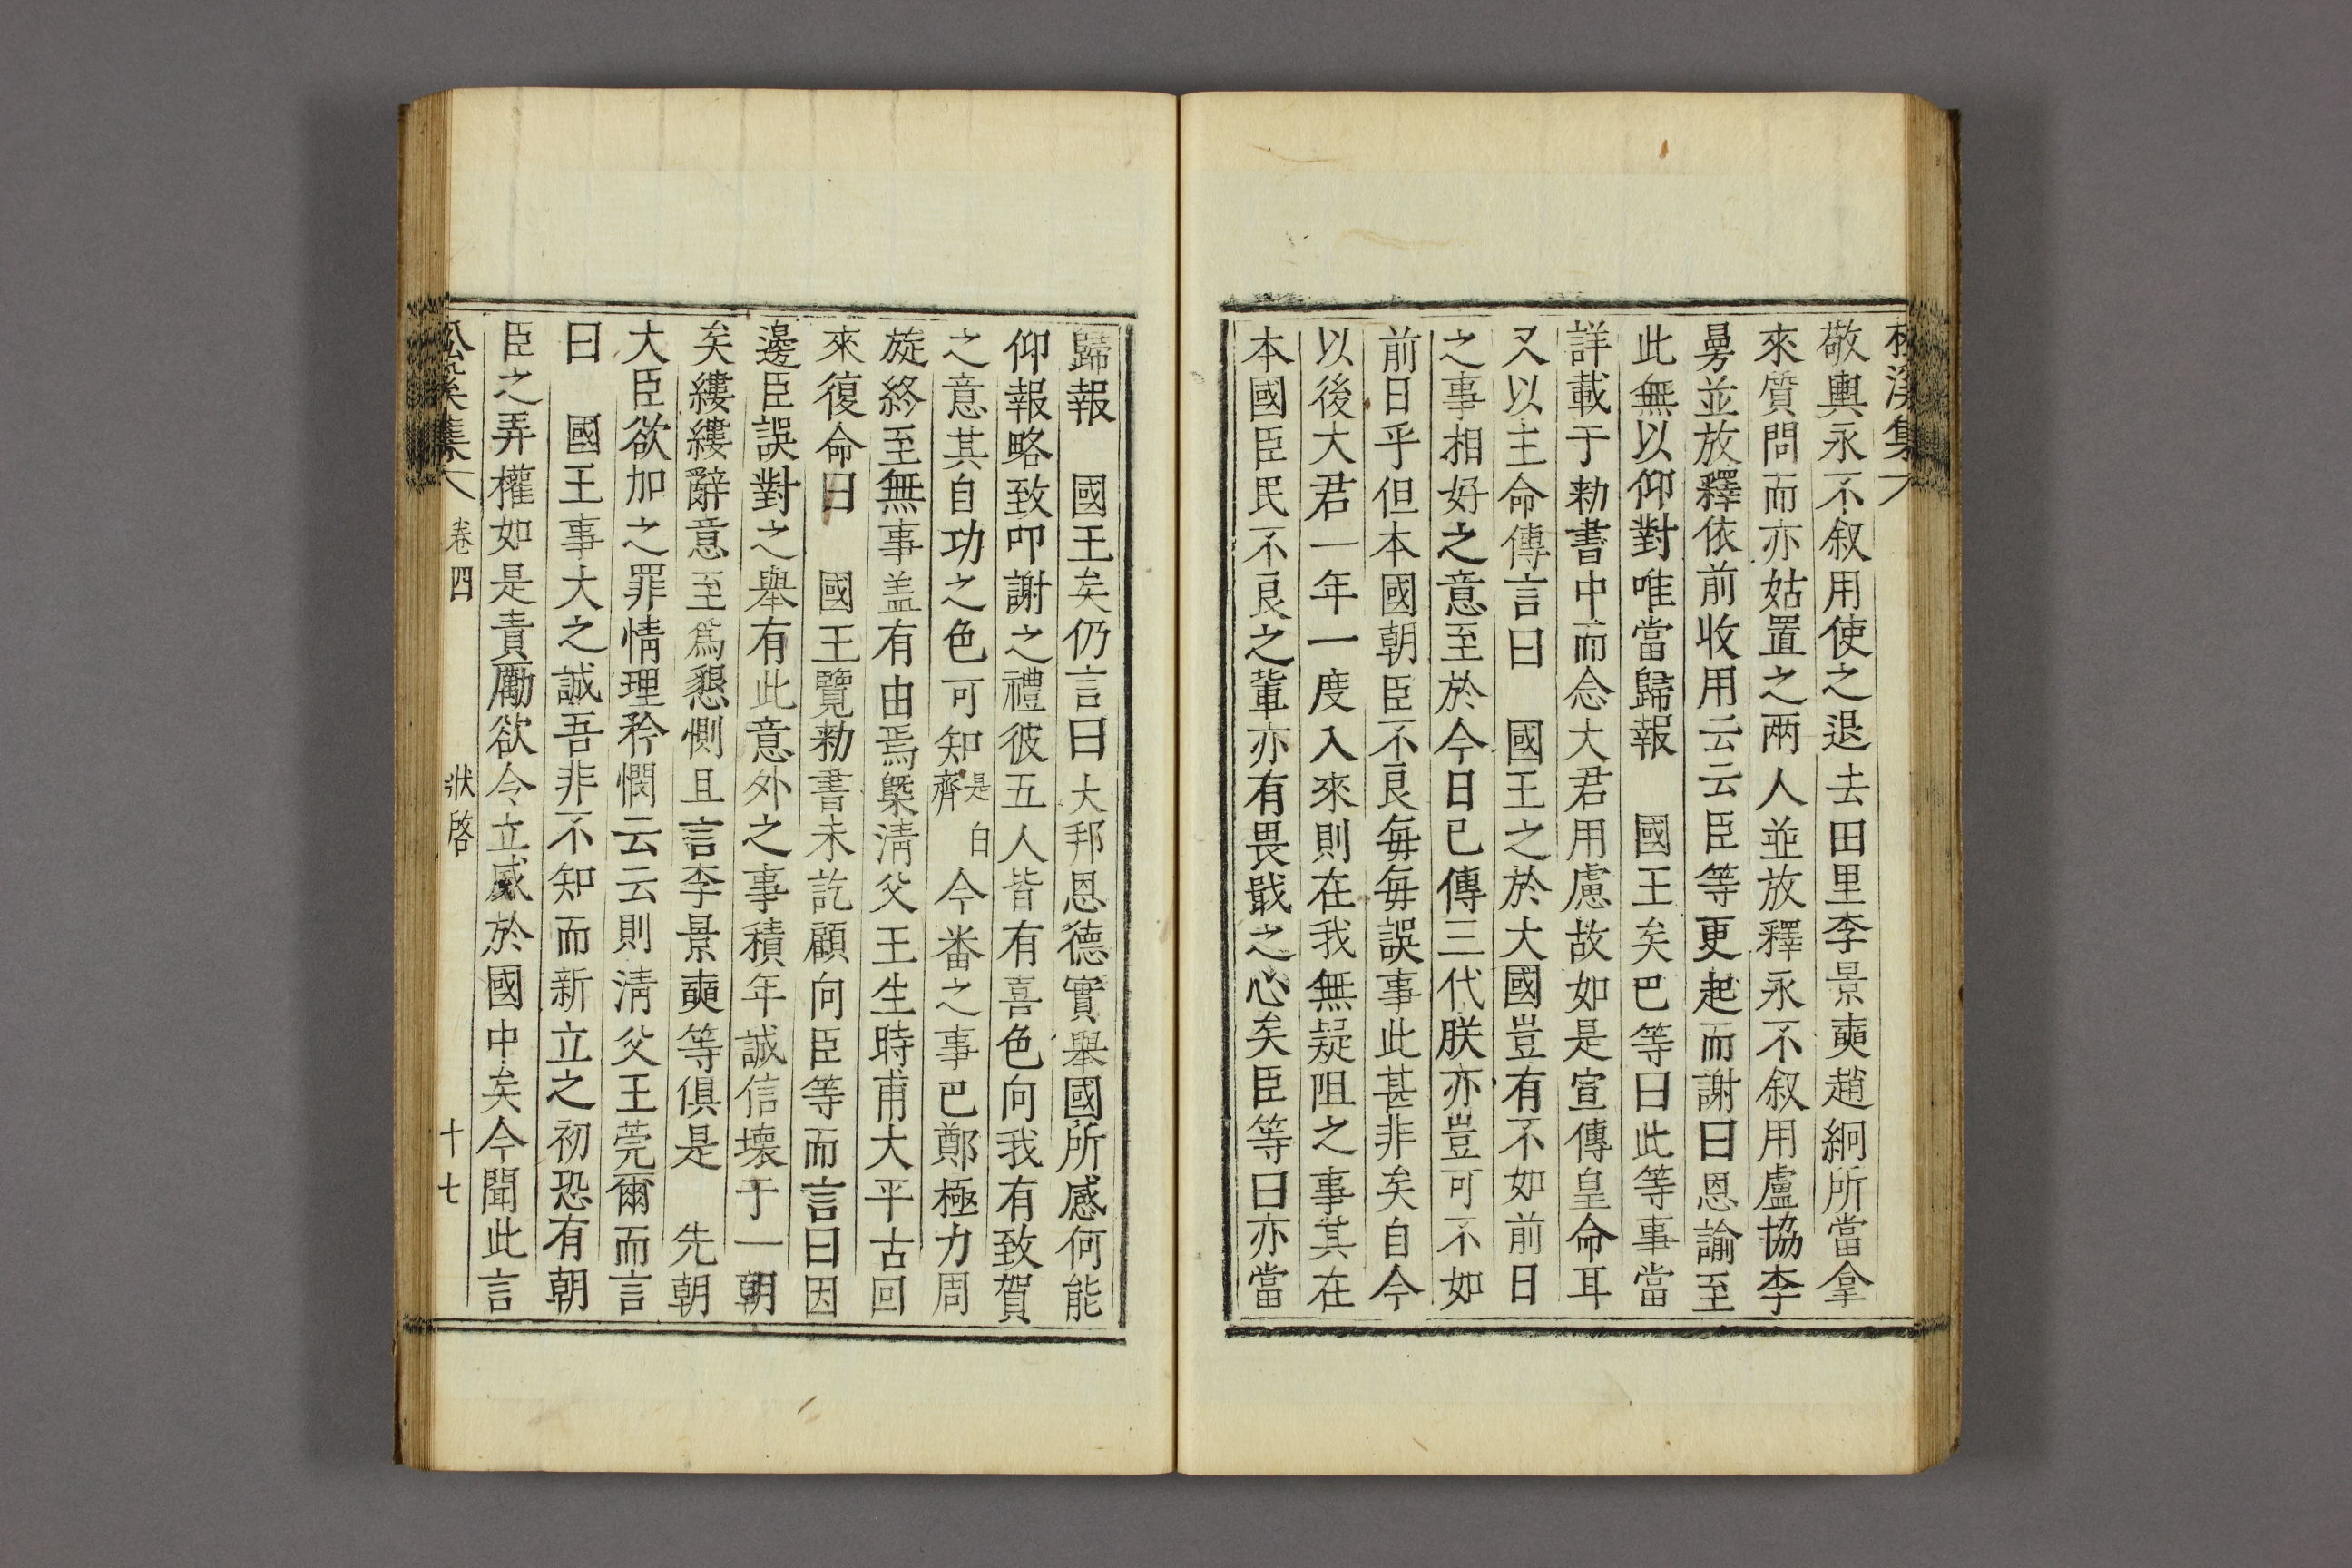 松溪集
敬輿永不叙用使之退去田里李景奭趙絅所當拿
來質問而亦姑置之兩人並放釋永不叙用盧協李
昜並放釋依前收用云云臣等更起而謝曰恩諭至
此無以仰對唯當歸報 國王矣巴等曰此等事當
詳載于勑書中而念大君用慮故如是宣傳皇命耳
又以主命傳言曰 國王之於大國豈有不如前日
之事相好之意至於今日已傳三代朕亦豈可不如
前日乎但本國朝臣不良每每誤事此甚非矣自今
以後大君一年一度入來則在我無疑阻之事其在
本國臣民不良之輩亦有畏戢之心矣臣等曰亦當
歸報 國王矣仍言曰大邦恩德實舉國所感何能
仰報略致叩謝之禮彼五人皆有喜色向我有致賀
之意其自功之色可知是白齊今番之事巴鄭極力周
旋終至無事盖有由焉槩淸父王生時甫大平古回
來復命曰 國王覽勑書未訖顧向臣等而言曰因
邊臣誤對之舉有此意外之事積年誠信壞于一朝
矣縷縷辭意至爲懇惻且言李景奭等俱是 先朝
大臣欲加之罪情理矜憫云云則淸父王莞爾而言
曰 國王事大之誠吾非不知而新立之初恐有朝
臣之弄權如是責勵欲令立威於國中矣今聞此言
松溪集 卷四 狀啓 十七